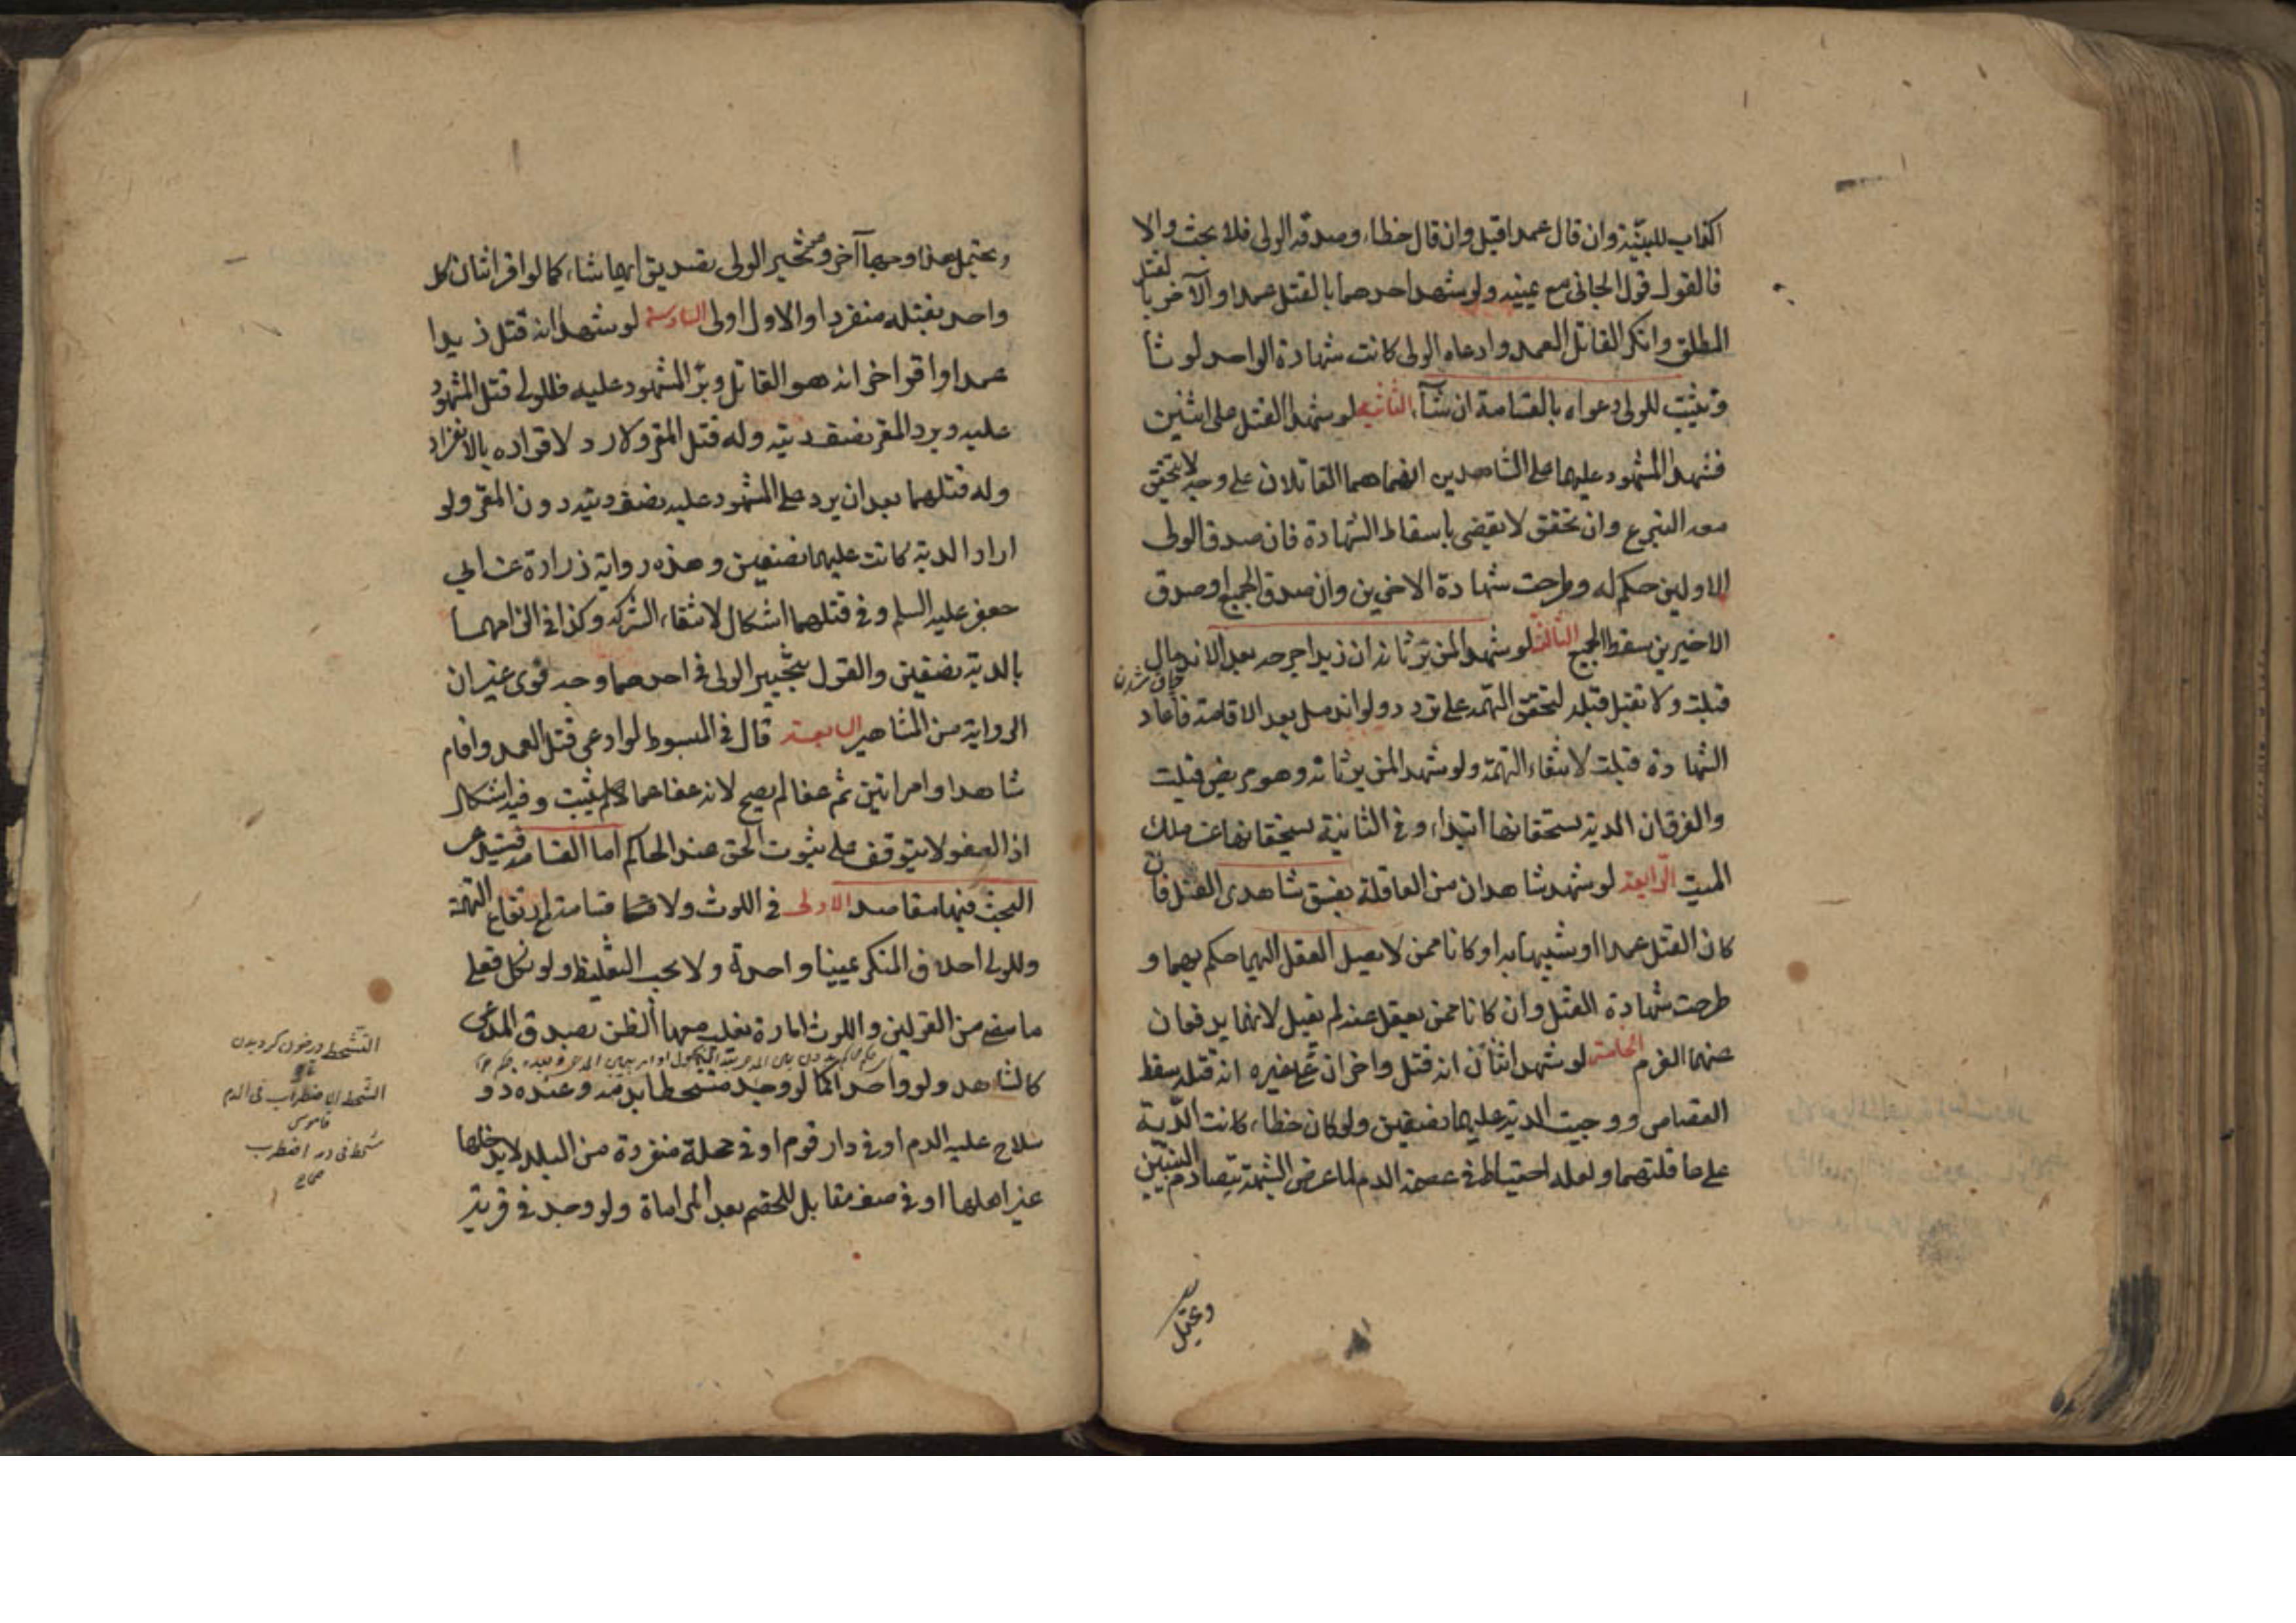 اكذاب للبينة وان قال عمدا قبل وان قال خطاء وصدقه الولى فلا بحث والا
فالقول قول الجانى مع يمينه ولو شهد احدهما بالقتل عمدا والآخر بالقتل
المطلق وانكر القاتل العمد وادعاه الولى كانت شهادة الواحد لوثا
وتثبت للولى دعواه بالقسامة ان شآء الثانيه لو شهدا لقتل على اثنين
فشهد المشهود عليهما على الشاهدين انهما هما القاتلان على وجه لا يتحقق
معه التبرع وان تحقق لا يقضى باسقاط الشهادة فان صدق الولى
الاولين حكم له وطرحت شهادة الاخيرين وان صدق الجميع او صدق
الاخيرين سقط الجميع الثالثة لو شهد المن يرثانه ان زيدا جرحه بعد الاندمال
چاق شدن
قبلت ولا تقبل قبله لتحقق التهمه على تردد ولو اندمل بعد الاقامة فاعاد
الشهادة قبلت لانتفاء التهمة ولو شهد المن يرثانه وهو مريض قبلت
والفرق ان الدية يستحقانها ابتداء وفى الثانية يستحقانها عن ملك
الميت الرابعة لو شهد شاهدان من العاقلة بفسق شاهدى القتل فان
كان القتل عمدا او شبيها به او كانا ممن لا يصل العقل اليهما حكم بهما و
طرحت شهادة القتل وان كانا ممن يعقل عنه لم يقبل لانهما يدفعان
عنهما الغرم الخامسة لو شهد اثنان انه قتل واخران على غيره انه قتله سقط
القصاص ووجبت الدية عليهما نصفين ولو كان خطاء كانت الدية
على عاقلتهما ولعله احتياط فى عصمة الدم لما عرض الشبهة بتصادم البينتين
ويحتمل هذا وجها آخر وهو تخير الولى بتصديق ايهما شاء كما لو اقر اثنان كل
واحد بقتله منفردا والاول اولى السادسة لو شهدا انه قتل زيدا
عمدا واقر اخر انه هو القاتل وبرّأ المشهود عليه فللولى قتل المشهود
عليه ويرد المقر نصف ديته وله قتل المقر ولا رد لاقراره بالانفراد
وله قتلهما بعد ان يرد على المشهود عليه نصف ديته دون المقر ولو
اراد الدية كانت عليهما نصفين وهذه رواية زرارة عن ابى
جعفر عليه السلم وفى قتلهما اشكال لانتفاء الشركه وكذا فى الزامهما
بالدية نصفين والقول بتخيير الولى فى احدهما وجه قوى غير ان
الرواية من المشاهير السابعة قال فى المبسوط لو ادعى قتل العمد واقام
شاهدا وامراتين ثم عفا لم يصح لانه عفا عما لم يثبت وفيه اشكال
اذ العفو لا يتوقف على ثبوت الحق عند الحاكم اما القسامة فيستدعى
البحث فيها مقاصد الاولى فى اللوث ولا قسامة مع ارتفاع التهمة
وللولى احلاف المنكر يمينا واحدة ولا يجب التغليظ ولو نكل فعلى
ما مضى من القولين واللوث امارة يغلب معها الظن بصدق المدعى
كالشاهد ولو واحدا كما لو وجد متشحطا بدمه وعنده ذو
سلاح عليه الدم او فى دار قوم او فى محلة منفردة من البلد لا يدخلها
غير اهلها او فى صف مقابل للخصم بعد المراماة ولو وجد فى قرية
التشحط در خون كرديدن
الشحط الاضطراب فى الدم
قاموس
تشحط فى دمه اضطرب
صحاح